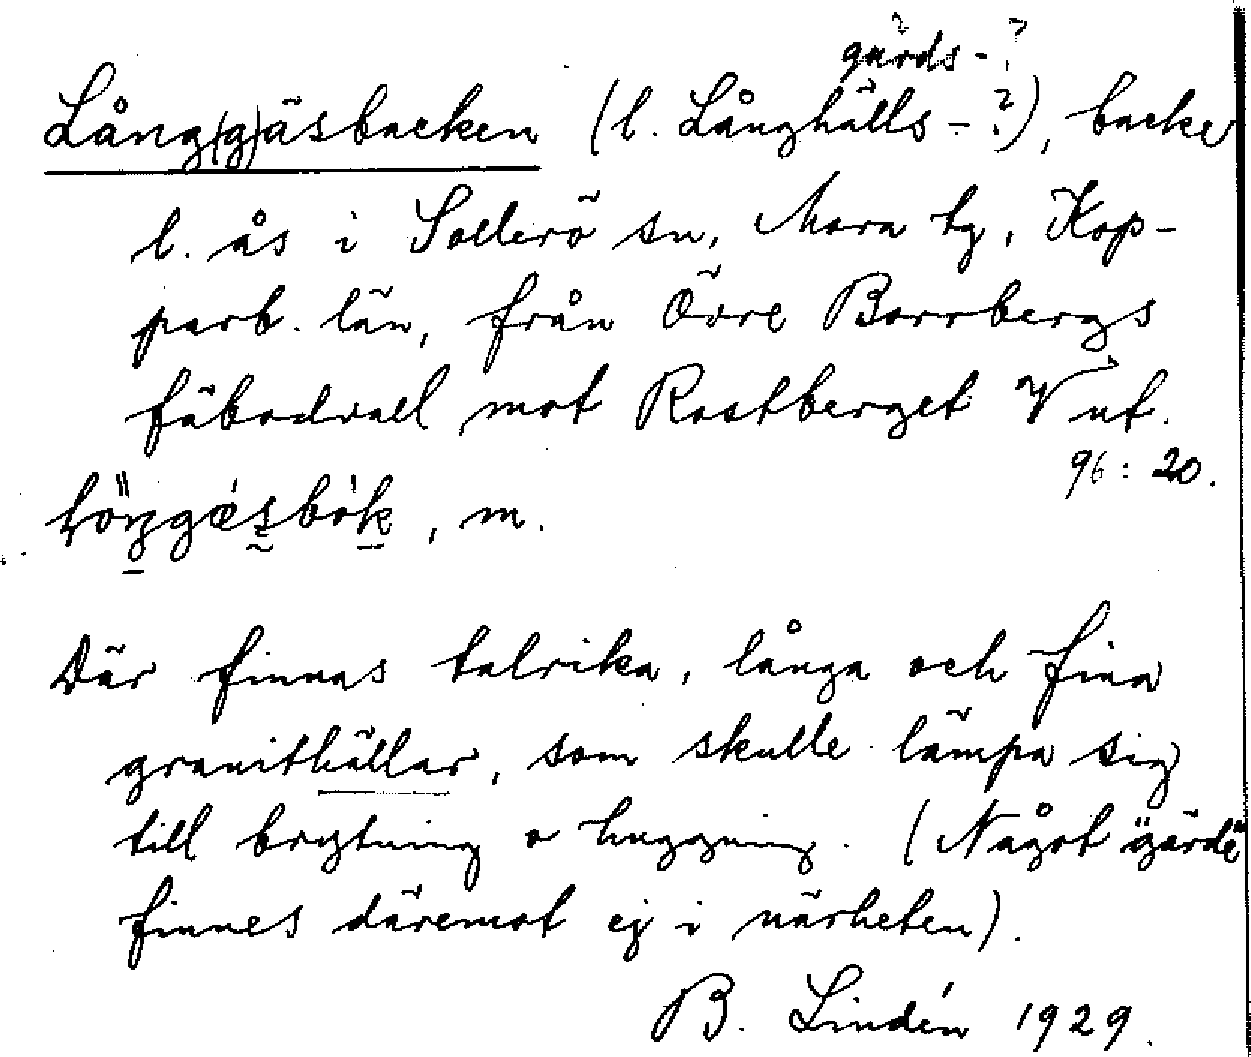 gärds-?
Lång(g)äsbacken (l. Långhälls-?), backe
l. ås i Sollerö sn, Mora tg, Kop-
parb. län, från Övre Borrbergs
fäbodvall mot Rostberget V ut.
96:20.
, m.
Där finnas talrika, långa och fina
granithällar, som skulle lämpa sig
till brytning o huggning. (Något "gärde"
finnes däremot ej i närheten).
B. Lindén 1929.